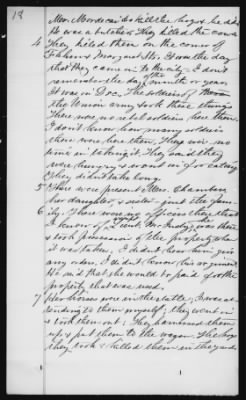 18
Mrs. Mordecai to kill the hogs & he did.
He was a butcher. They killed the cows
4 They killed them on the corner of
It was the day
that they came in the city. I don't
remember the day of the month or year.
It was in Dec. The soldiers of
the Union army took these things
There were no rebel soldiers here then.
I don't know how many soldiers
there were here then. They were no
time in taking it. They said they
were hungry & wanted it for eating
& they didn't take long.
5 There were present Mrs. Chambers
her daughter & sister - just the fam-
6 ily. There were no officers there that
I know of. Lieut. was there
& took possession of the property when
it was taken. I didn't hear him give
any orders. I didn't know him or
He said that she would be paid for the
property that was used.
7 Her horses were in the stable; I was at-
tending to them myself; they went in
& took them out; They harnessed them
up & put them to the wagon. The hogs
they took & killed them in the yard